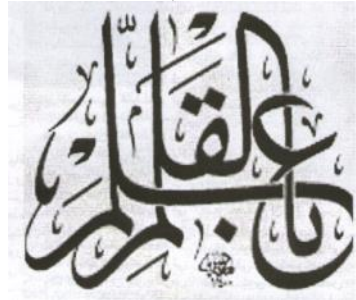 علّم بالقلم